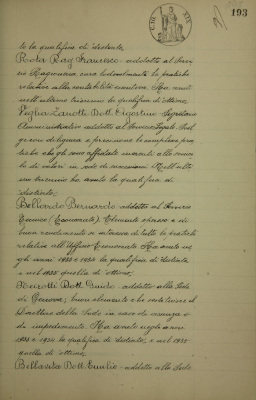 193
to la qualifica di distinto.
Rosta Rag. Francesco addetto al Servi-
zio Ragioneria cura lodevolmente le pratiche
relative alla contabilità
nell'ultimo triennio la qualifica di ottimo.
Dott. Agostino Segretario
Amministrativo addetto al Servizio Legale. Svol-
ge con diligenza e precisione le complesse pra-
tiche che gli sono affidate
di valori in sede di successioni. Nell'ulti-
mo triennio ha avuto la qualifica di
distinto.
Bellardo Bernardo addetto al Servizio
Tecnico (Economato). Elemento
buon rendimento si interessa di tutte le pratiche
relative all'Ufficio Economato. Ha avuto ne-
gli anni 1933 e 1934 la qualifica di distinto
e nel 1935 quella di ottimo.
Dott. Guido - addetto alla Sede
di Genova; buon elemento che sostituisce il
Direttore della Sede in caso di assenza o
di impedimento. Ha avuto negli anni
1933 e 1934 la qualifica di distinto, e nel 1935
quella di ottimo.
Bellavita Dott. Emilio - addetto alla Sede